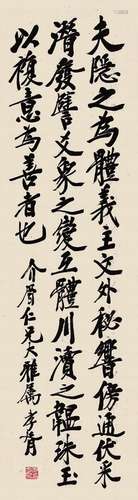 夫隱之為體義主文外秘響傍通伏采
潛發譬爻象之變互體川瀆之韞珠玉
以複意為善者也
介眉仁兄大雅屬 孝胥